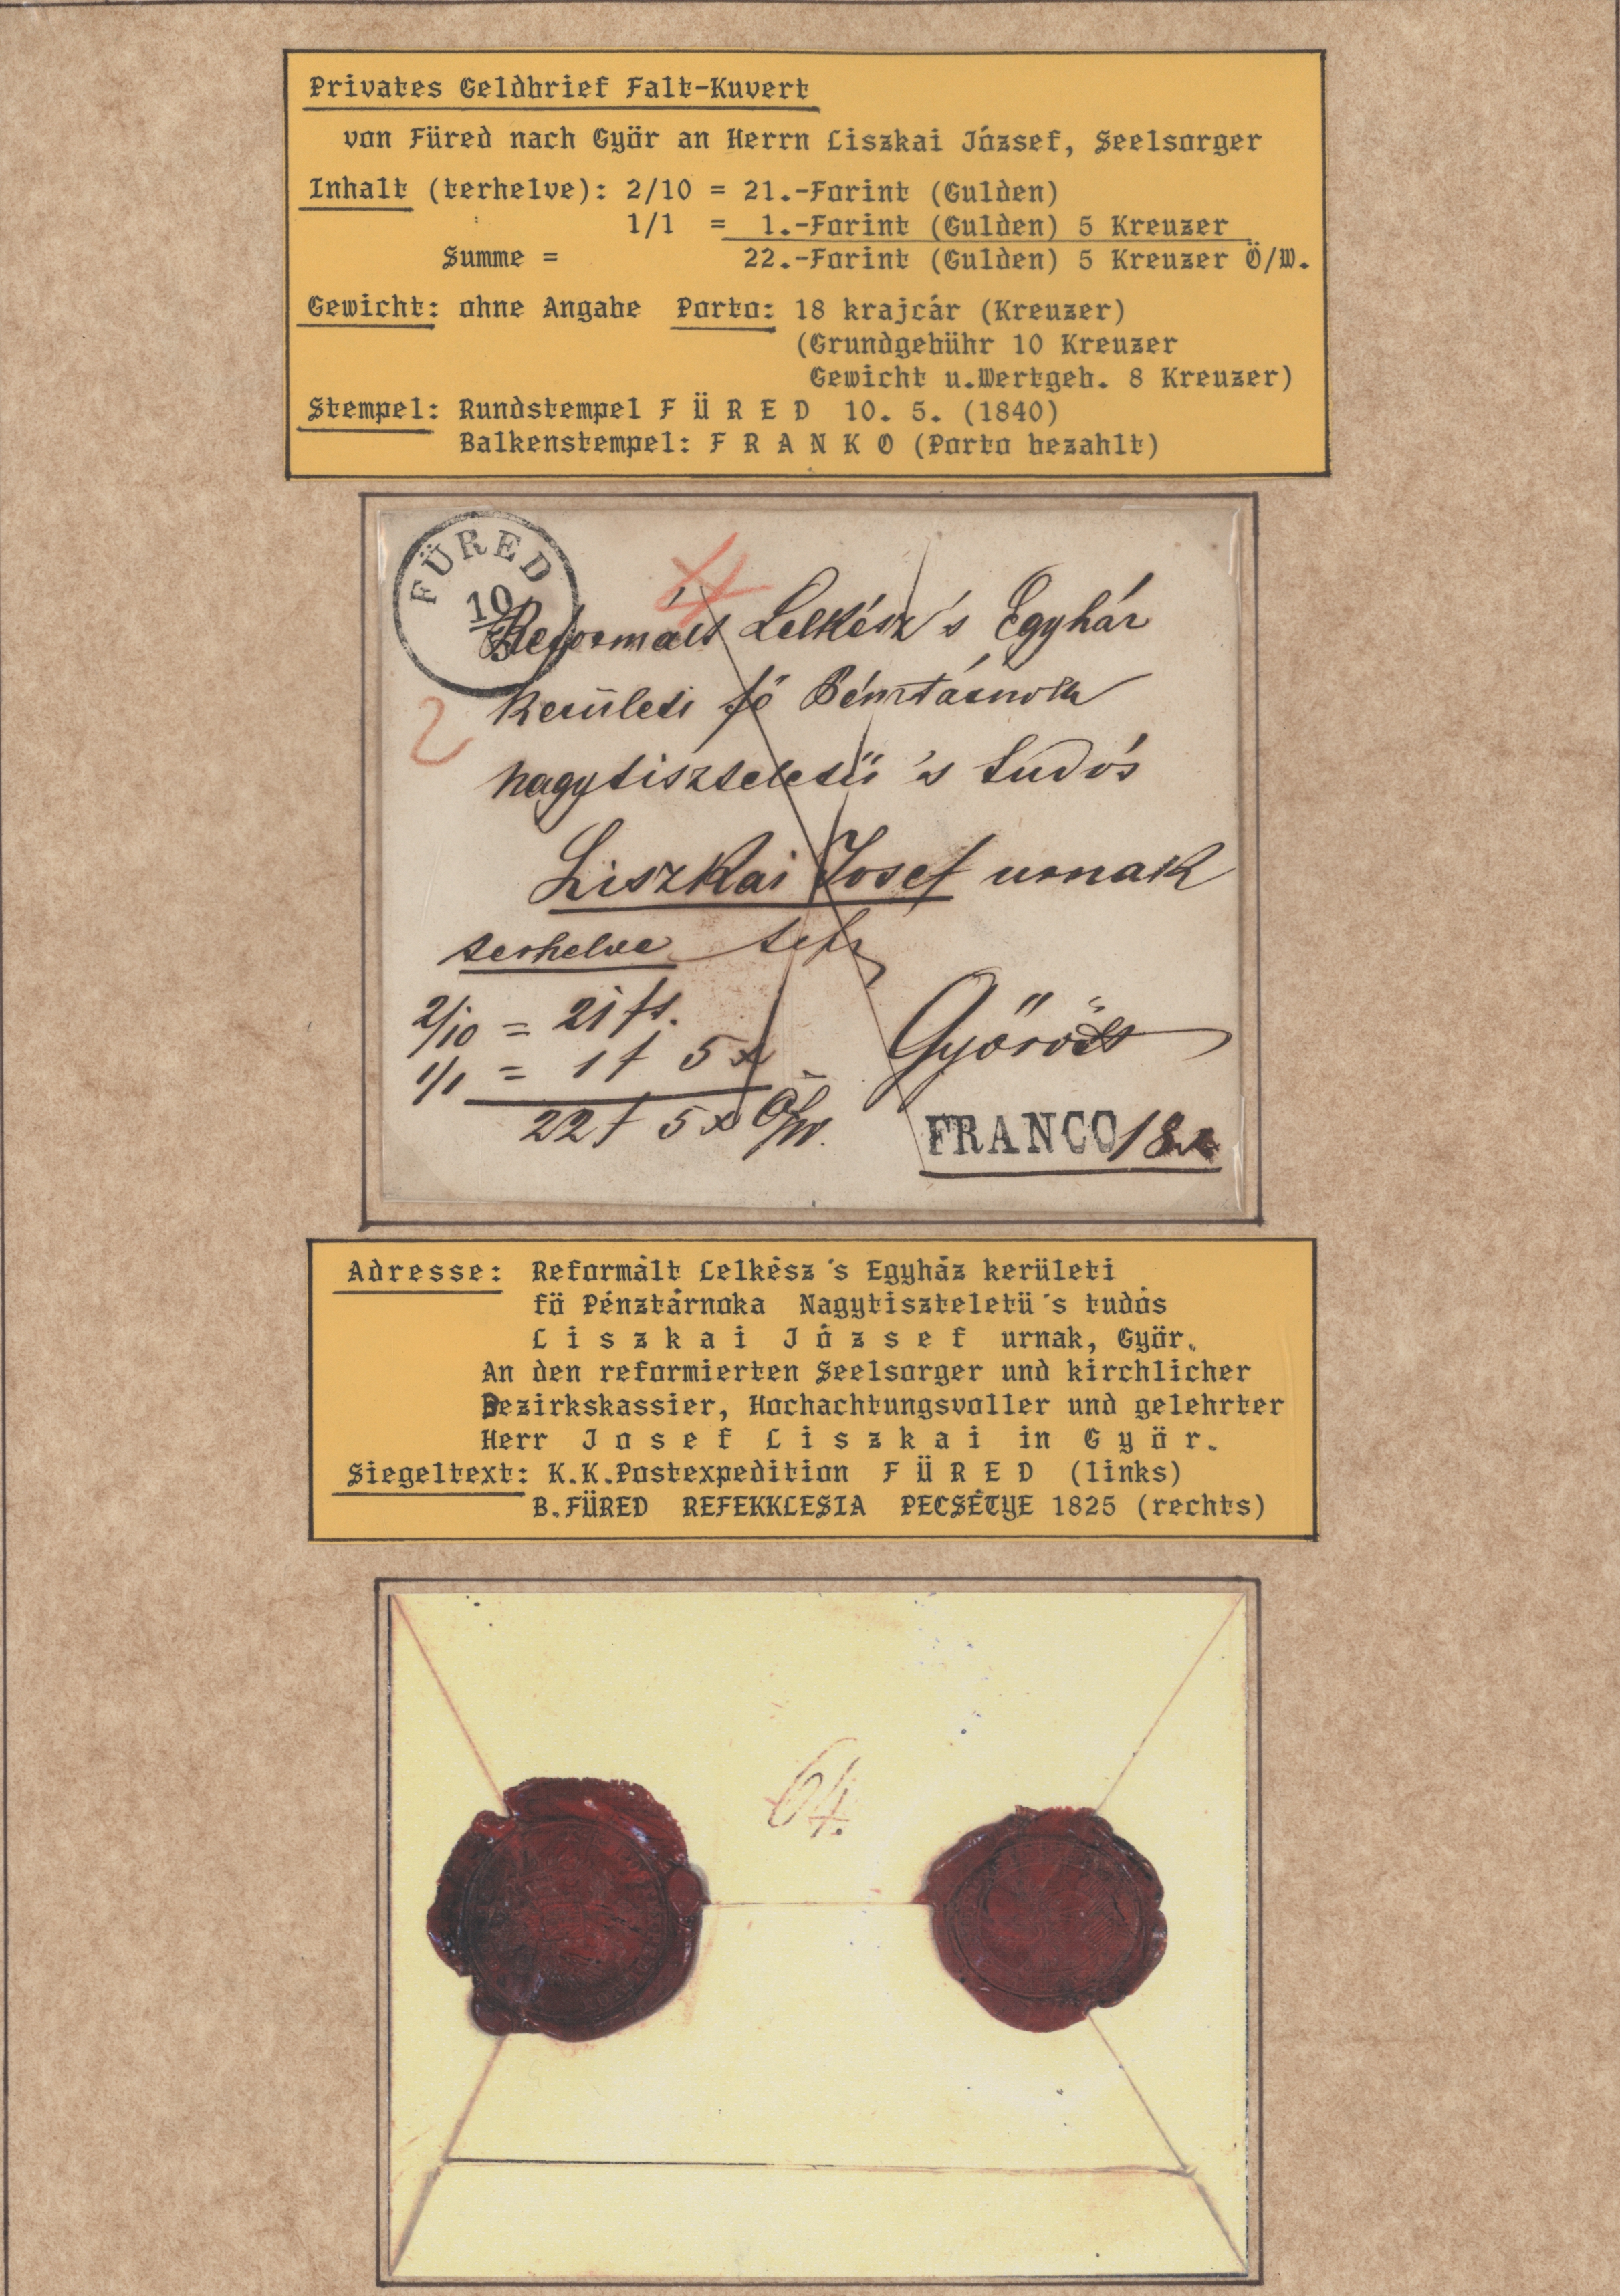 Privates Geldbrief Falt-Kuvert
von Füred nach Györ an Herrn Liszkai József, Seelsorger
Inhalt (terhelve): 2/10 = 21.-Forint (Gulden)
1/1 = 1.-Forint (Gulden) 5 Kreuzer
Summe = 22.-Forint (Gulden) 5 Kreuzer Ö/W.
Gewicht: ohne Angabe Porto: 18 krajcár (Kreuzer)
(Grundgebühr 10 Kreuzer
Gewicht u.Wertgeb. 8 Kreuzer)
Stempel: Rundstempel F Ü R E D 10. 5. (1840)
Balkenstempel: F R A N K O (Porto bezahlt)
FÜRED
10
Reformált Lelkész 's Egyház
kerületi fő Pénztárnok
nagytiszteletü 's tudós
Liszkai Josef urnak
terhelve
2/10 = 21 ft.
1/1 = 1 f 5 x
22 f 5 x Ö/W.
Győrött
FRANCO 18x
Adresse: Reformált Lelkész 's Egyház kerületi
fö Pénztárnoka Nagytiszteletü 's tudós
L i s z k a i J ó z s e f urnak, Györ.
An den reformierten Seelsorger und kirchlicher
Bezirkskassier, Hochachtungsvoller und gelehrter
Herr J o s e f L i s z k a i in G y ö r.
Siegeltext: K.K.Postexpedition F Ü R E D (links)
B.FÜRED REFEKKLESIA PECSÉTYE 1825 (rechts)
64.